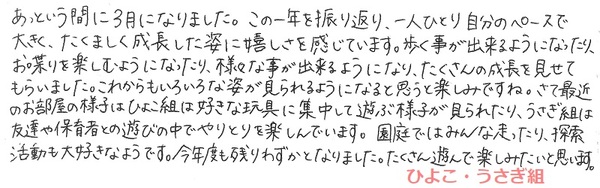 あっという間に3月になりました。この一年を振り返り、一人ひとり自分のペースで
大きく、たくましく成長した姿に嬉しさを感じています。歩く事が出来るようになったり、
お喋りを楽しむようになったり、様々な事が出来るようになり、たくさんの成長を見せて
もらいました。これからもいろいろな姿が見られるようになると思うと楽しみですね。さて最近
のお部屋の様子はひよこ組は好きな玩具に集中して遊ぶ様子が見られたり、うさぎ組は
友達や保育者との遊びの中でやりとりを楽しんでいます。園庭ではみんな走ったり、探索
活動も大好きなようです。今年度も残りわずかとなりました。たくさん遊んで楽しみたいと思います。
ひよこ・うさぎ組